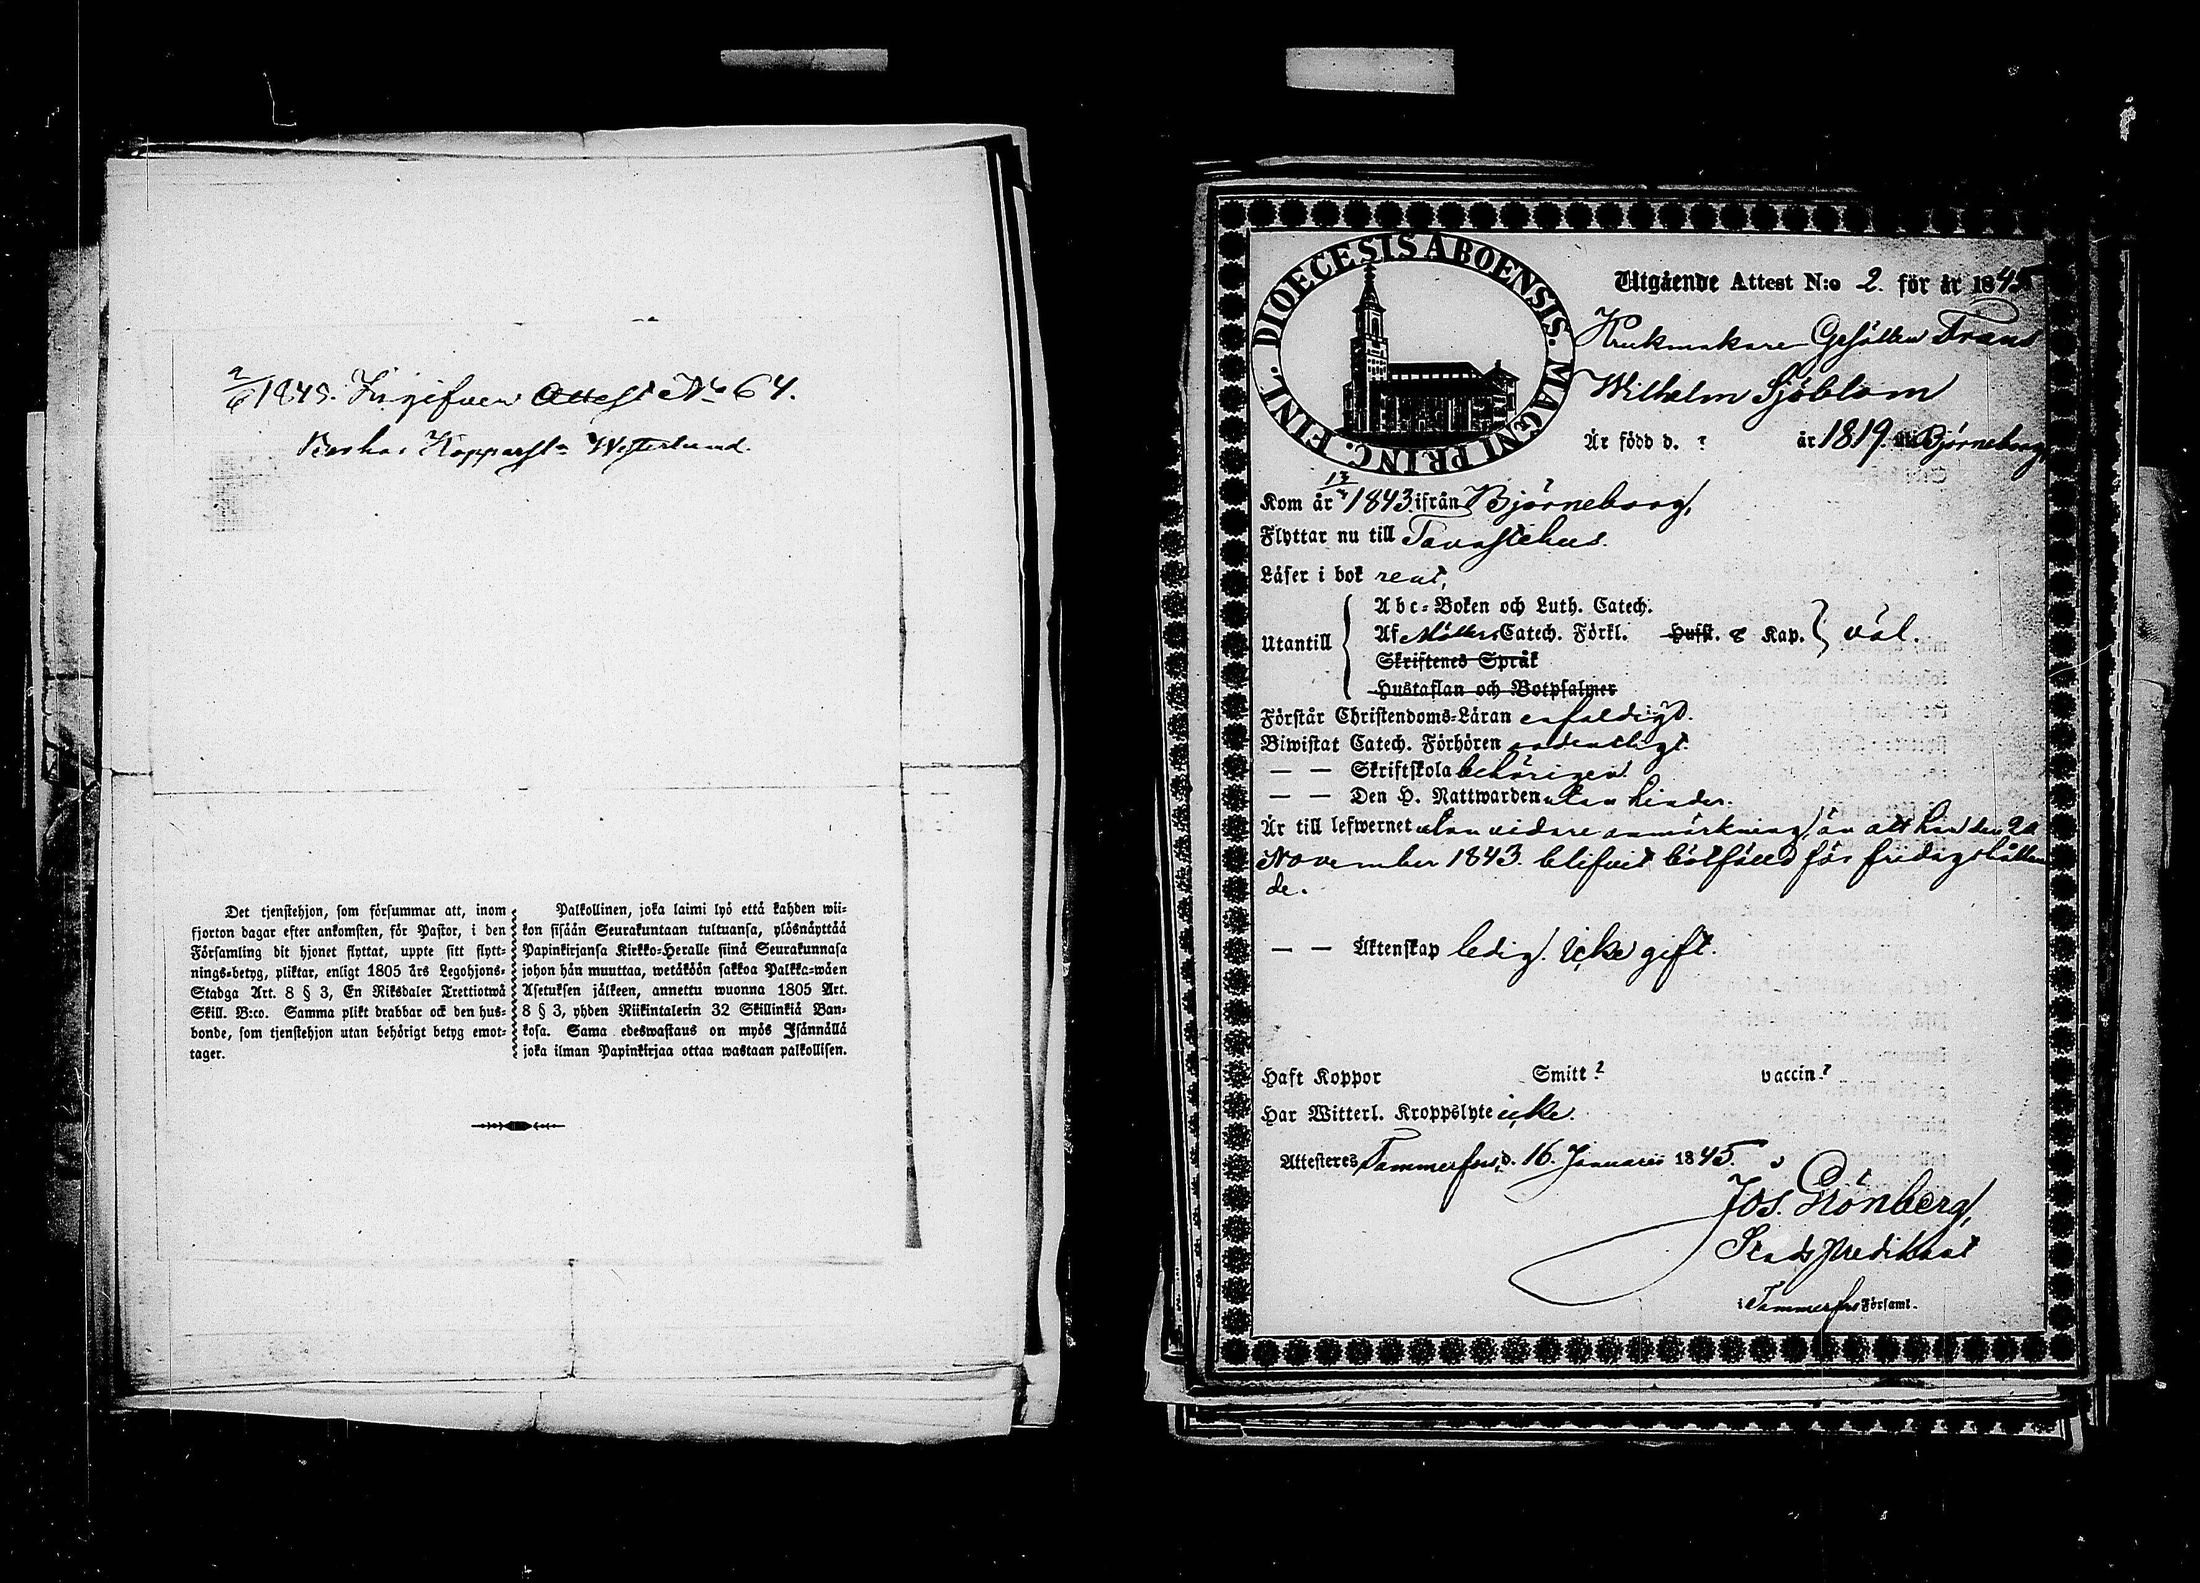 2/6 1845. Ingifven Attest No 64.
Westerlund.
Det tjenstehjon, som försummar att, inom
fjorton dagar efter ankomsten, för Pastor, i den
Församling dit hjonet flyttat, uppte sitt flytt-
nings-betyg, pliktar, enligt 1805 års Legohjons-
Stadga Art. 8 § 3, En Riksdaler Trettiotwå
Skill. B:co. Samma plikt drabbar ock den hus-
bonde, som tjenstehjon utan behörigt betyg emot-
tager.
Palkollinen, joka laimi lyö että kahden wii-
kon sisään Seurakuntaan tultuansa, ylösnäyttää
Papinkirjansa Kirkko-Heralle siinä Seurakunnasa
johon hän muuttaa, wetäköön sakkoa Palkka-wäen
Asetuksen jälkeen, annettu wuonna 1805 Art.
8 § 3, yhden Riikintalerin 32 Skillinkiä Ban-
kosa. Sama edeswastaus on myös Isännällä
joka ilman Papinkirjaa ottaa wastaan palkollisen.
DIOECESIS ABOENSIS. MAGNI PRINC. FINL.
Utgående Attest N:o 2. för år 1845
Krukmakare Gesällen Frans
Wilhelm Sjöblom
Är född d. ? år 1819. i Björneborg
Kom år 1843 ifrån Björneborg,
Flyttar nu till Tavastehus.
Läser i bok rent,
Utantill
Abc-Boken och Luth. Catech.
Af Möllers Catech. Förkl. Hufst. 8 Kap. } väl.
Skriftenes Språk
Hustaflan och Botpsalmer
Förstår Christendoms-Läran enfaldigt.
Biwistat Catech. Förhören ordentligt.
— — Skriftskola behörigen.
— — Den H. Nattwarden utan hinder.
Är till lefwernet utan vidare anmärkning, än att han den 20
November 1843 blifvit bötfälld för fredagshållan
de.
— — Äktenskap ledig. icke gift.
Haft Koppor Smitt ? vaccin. ?
Har Witterl. Kroppslyte icke.
Attesteres, Tammerfors, d. 16. Januarii 1845.
Jos. Grönberg,
Stads Predikant
i Tammerfors Församl.